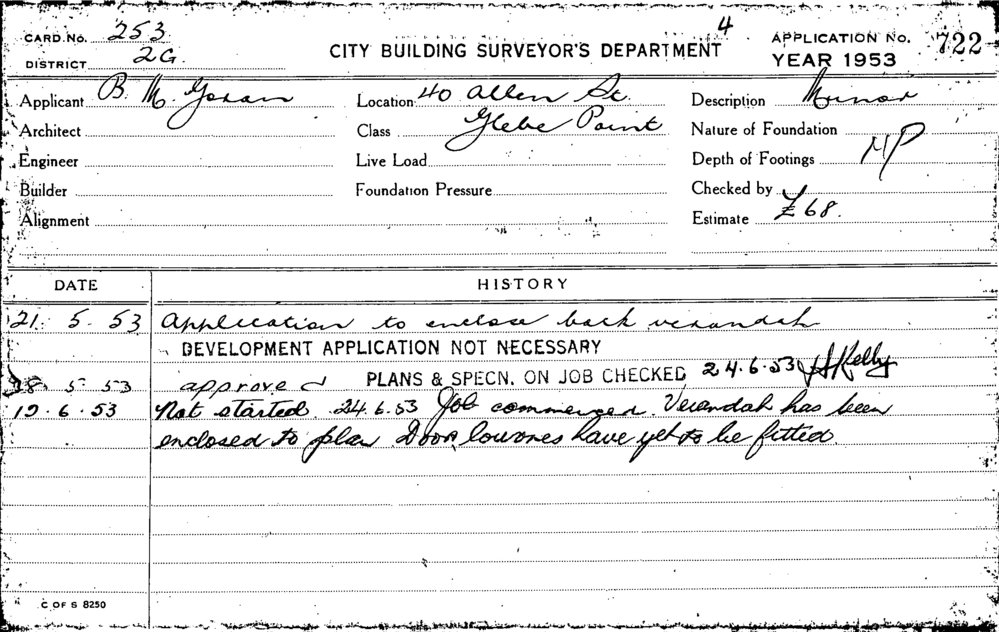 CARD. No. 253
4
CITY BUILDING SURVEYOR'S DEPARTMENT
APPLICATION No. 722
DISTRICT 2G.
YEAR 1953
Applicant B. M. Goran
Location 40 Allen St.
Description Minor
Architect
Class Glebe Point
Nature of Foundation
Engineer
Live Load
Depth of Footings
Builder
Foundation Pressure
Checked by
Alignment
Estimate £68.
DATE HISTORY
21. 5. 53 Application to enclose back verandah
DEVELOPMENT APPLICATION NOT NECESSARY
28. 5. 53 approved PLANS & SPECN. ON JOB CHECKED 24.6.53 Kelly
19.6.53 Not started 24.6.53 Job commenced. Verandah has been
enclosed to plan Door, louvres have yet to be fitted
C OF S 8250